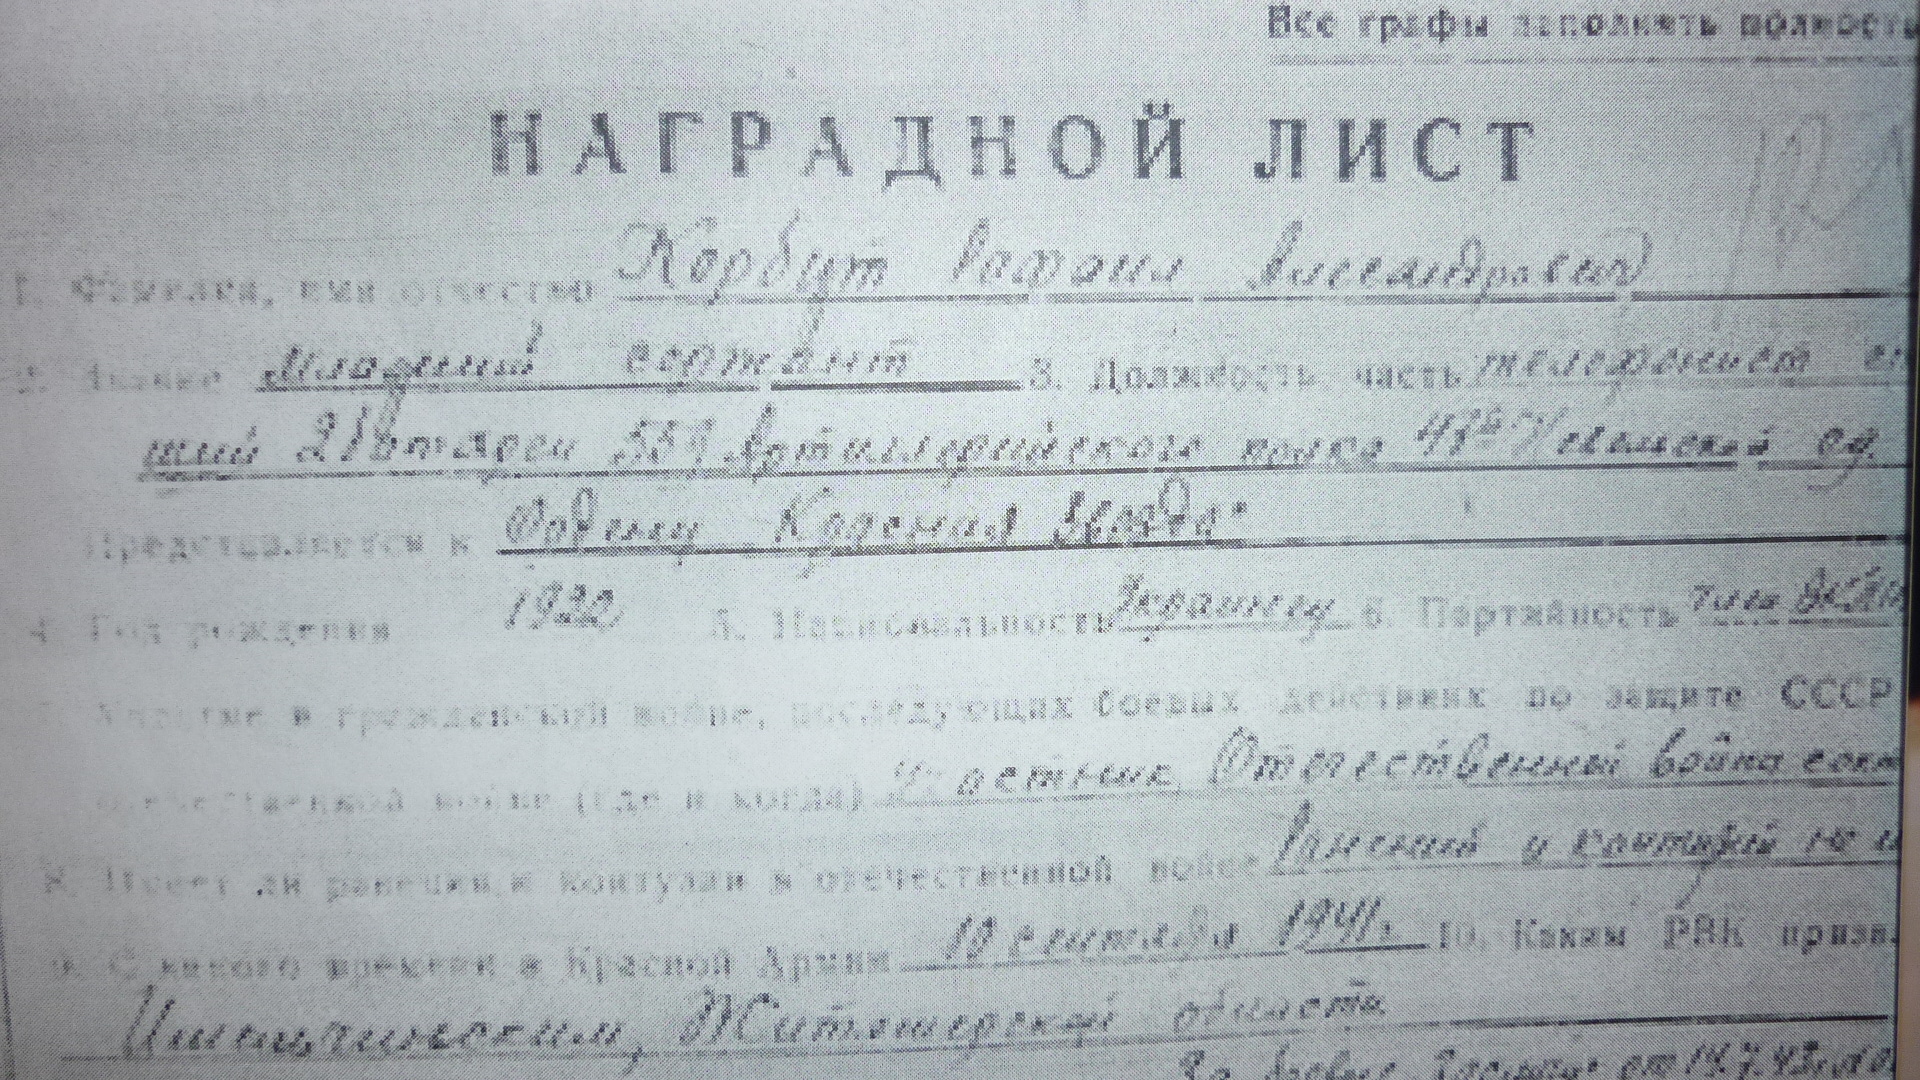 Все графы заполнять полность
НАГРАДНОЙ ЛИСТ
1. Фамилия, имя отчество Корбут Рафаил Александрович
2. Звание Младший сержант 3. Должность часть телефонист
ший батареи 559 Артиллерийского полка 47й Невельской сд.
Представляется к Ордену "Красная Звезда"
4. Год рождения 1920 5. Национальность Украинец 6. Партийность член
7. Участие в гражданской войне, последующих боевых действиях по защите СССР
отечественной войне (где и когда) Участник Отечественной война
8. Имеет ли ранения и контузии в отечественной войне Ранений и контузий не
9. С какого времени в Красной Армии 10 сентября 1941г. 10. Каким РВК призв.
Житомирской области
За боевые от 14.7.43г.